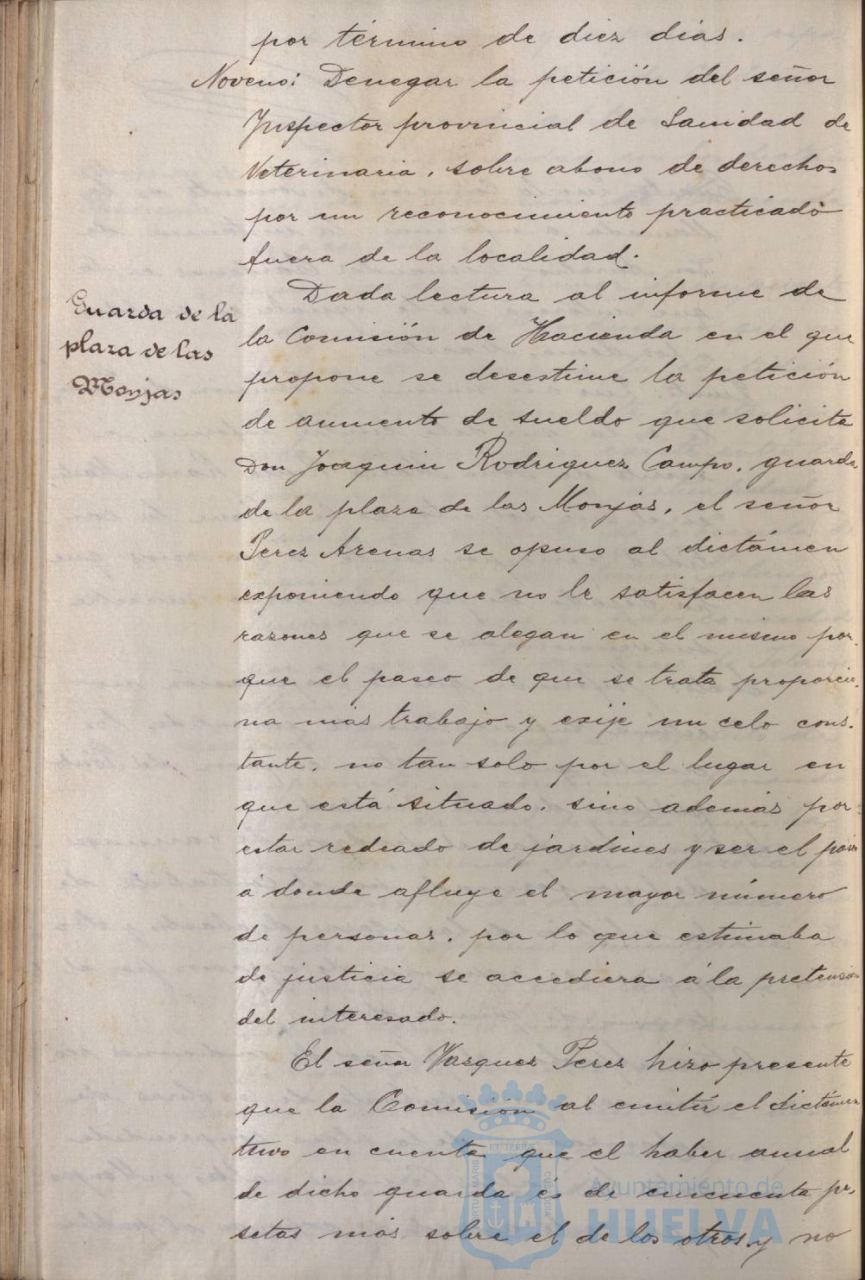 por término de diez días.
Noveno: Denegar la petición del señor
Inspector provincial de Sanidad de
Veterinaria, sobre abono de derechos
por un reconocimiento practicado
fuera de la localidad.
Guarda de la
plaza de las
Monjas
Dada lectura al informe de
la Comisión de Hacienda en el que
propone se desestime la petición
de aumento de sueldo que solicita
Don Joaquin Rodriguez Campo, guarda
de la plaza de las Monjas, el señor
Perez Arenas se opuso al dictámen
exponiendo que no le satisfacen las
razones que se alegan en el mismo por-
que el paseo de que se trata proporcio-
na mas trabajo y exije un celo cons-
tante, no tan solo por el lugar en
que está situado, sino además por
estar rodeado de jardines y ser el paseo
á donde afluye el mayor número
de personas, por lo que estimaba
de justicia se accediera á la pretensión
del interesado.
El señor Vazquez Perez hizo presente
que la Comisión al emitir el dictámen
tuvo en cuenta que el haber anual
de dicho guarda es de cincuenta pe-
setas más sobre el de los otros y no
Ayuntamiento de
HUELVA